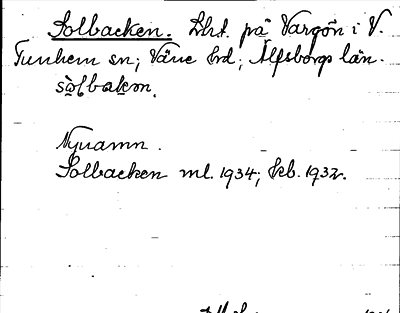 Solbacken. Lht. på Vargön i V.
Tunhem sn; Väne hd; Älfsborgs län.
Nynamn.
Solbacken ml. 1934; kb. 1932.